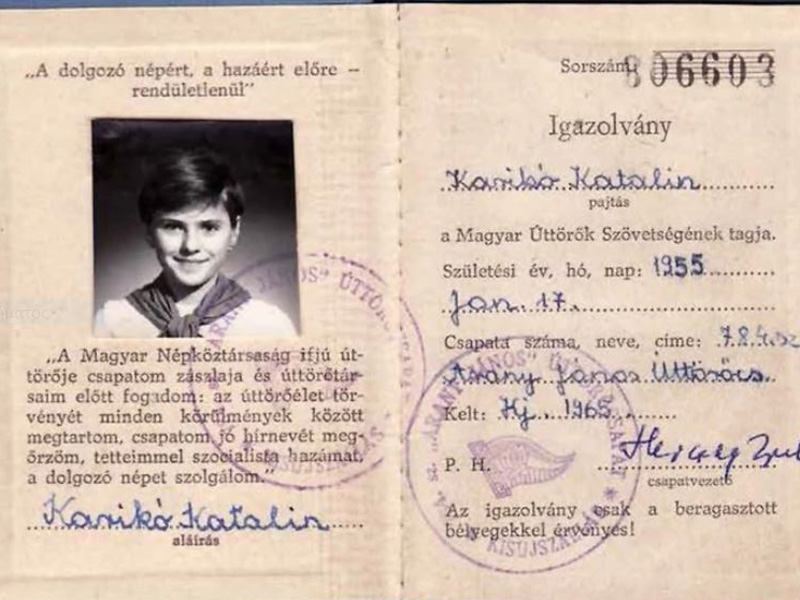 „A dolgozó népért, a hazáért előre –
rendületlenül”
„A Magyar Népköztársaság ifjú út-
törője csapatom zászlaja és úttörőtár-
saim előtt fogadom: az úttörőélet tör-
vényét minden körülmények között
megtartom, csapatom jó hírnevét meg-
őrzöm, tetteimmel szocialista hazámat,
a dolgozó népet szolgálom.”
Karikó Katalin
aláírás
Sorszám: 806603
Igazolvány
Karikó Katalin
pajtás
a Magyar Úttörők Szövetségének tagja.
Születési év, hó, nap: 1955
Jan. 17.
Csapata száma, neve, címe: 784. sz
Arany János Úttörőcs.
Kelt: Kj. 1965
P. H. Herczeg
csapatvezető
Az igazolvány csak a beragasztott
bélyegekkel érvényes!
"ARANY JÁNOS" ÚTTÖRŐCSAPAT
KISÚJSZÁLLÁS